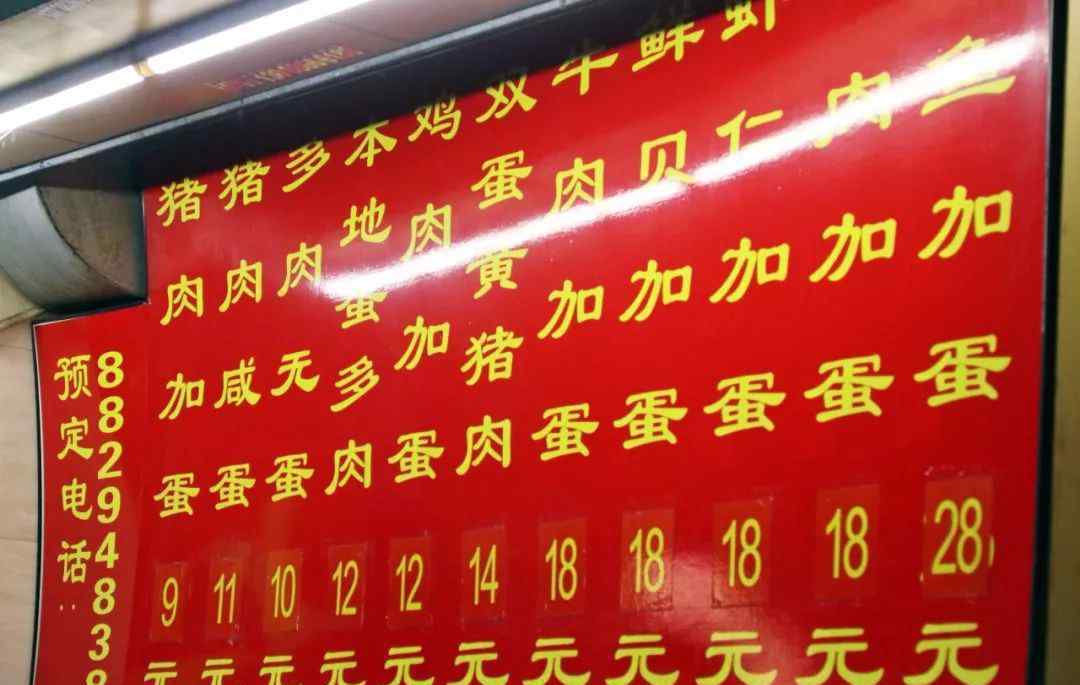 预定电话:
8829483
猪肉加蛋9元
猪肉咸蛋11元
多肉无蛋10元
本地蛋多肉12元
鸡肉加蛋12元
双蛋黄猪肉14元
牛肉加蛋18元
鲜贝加蛋18元
虾仁加蛋18元
肉加蛋18元
鱼加蛋28元